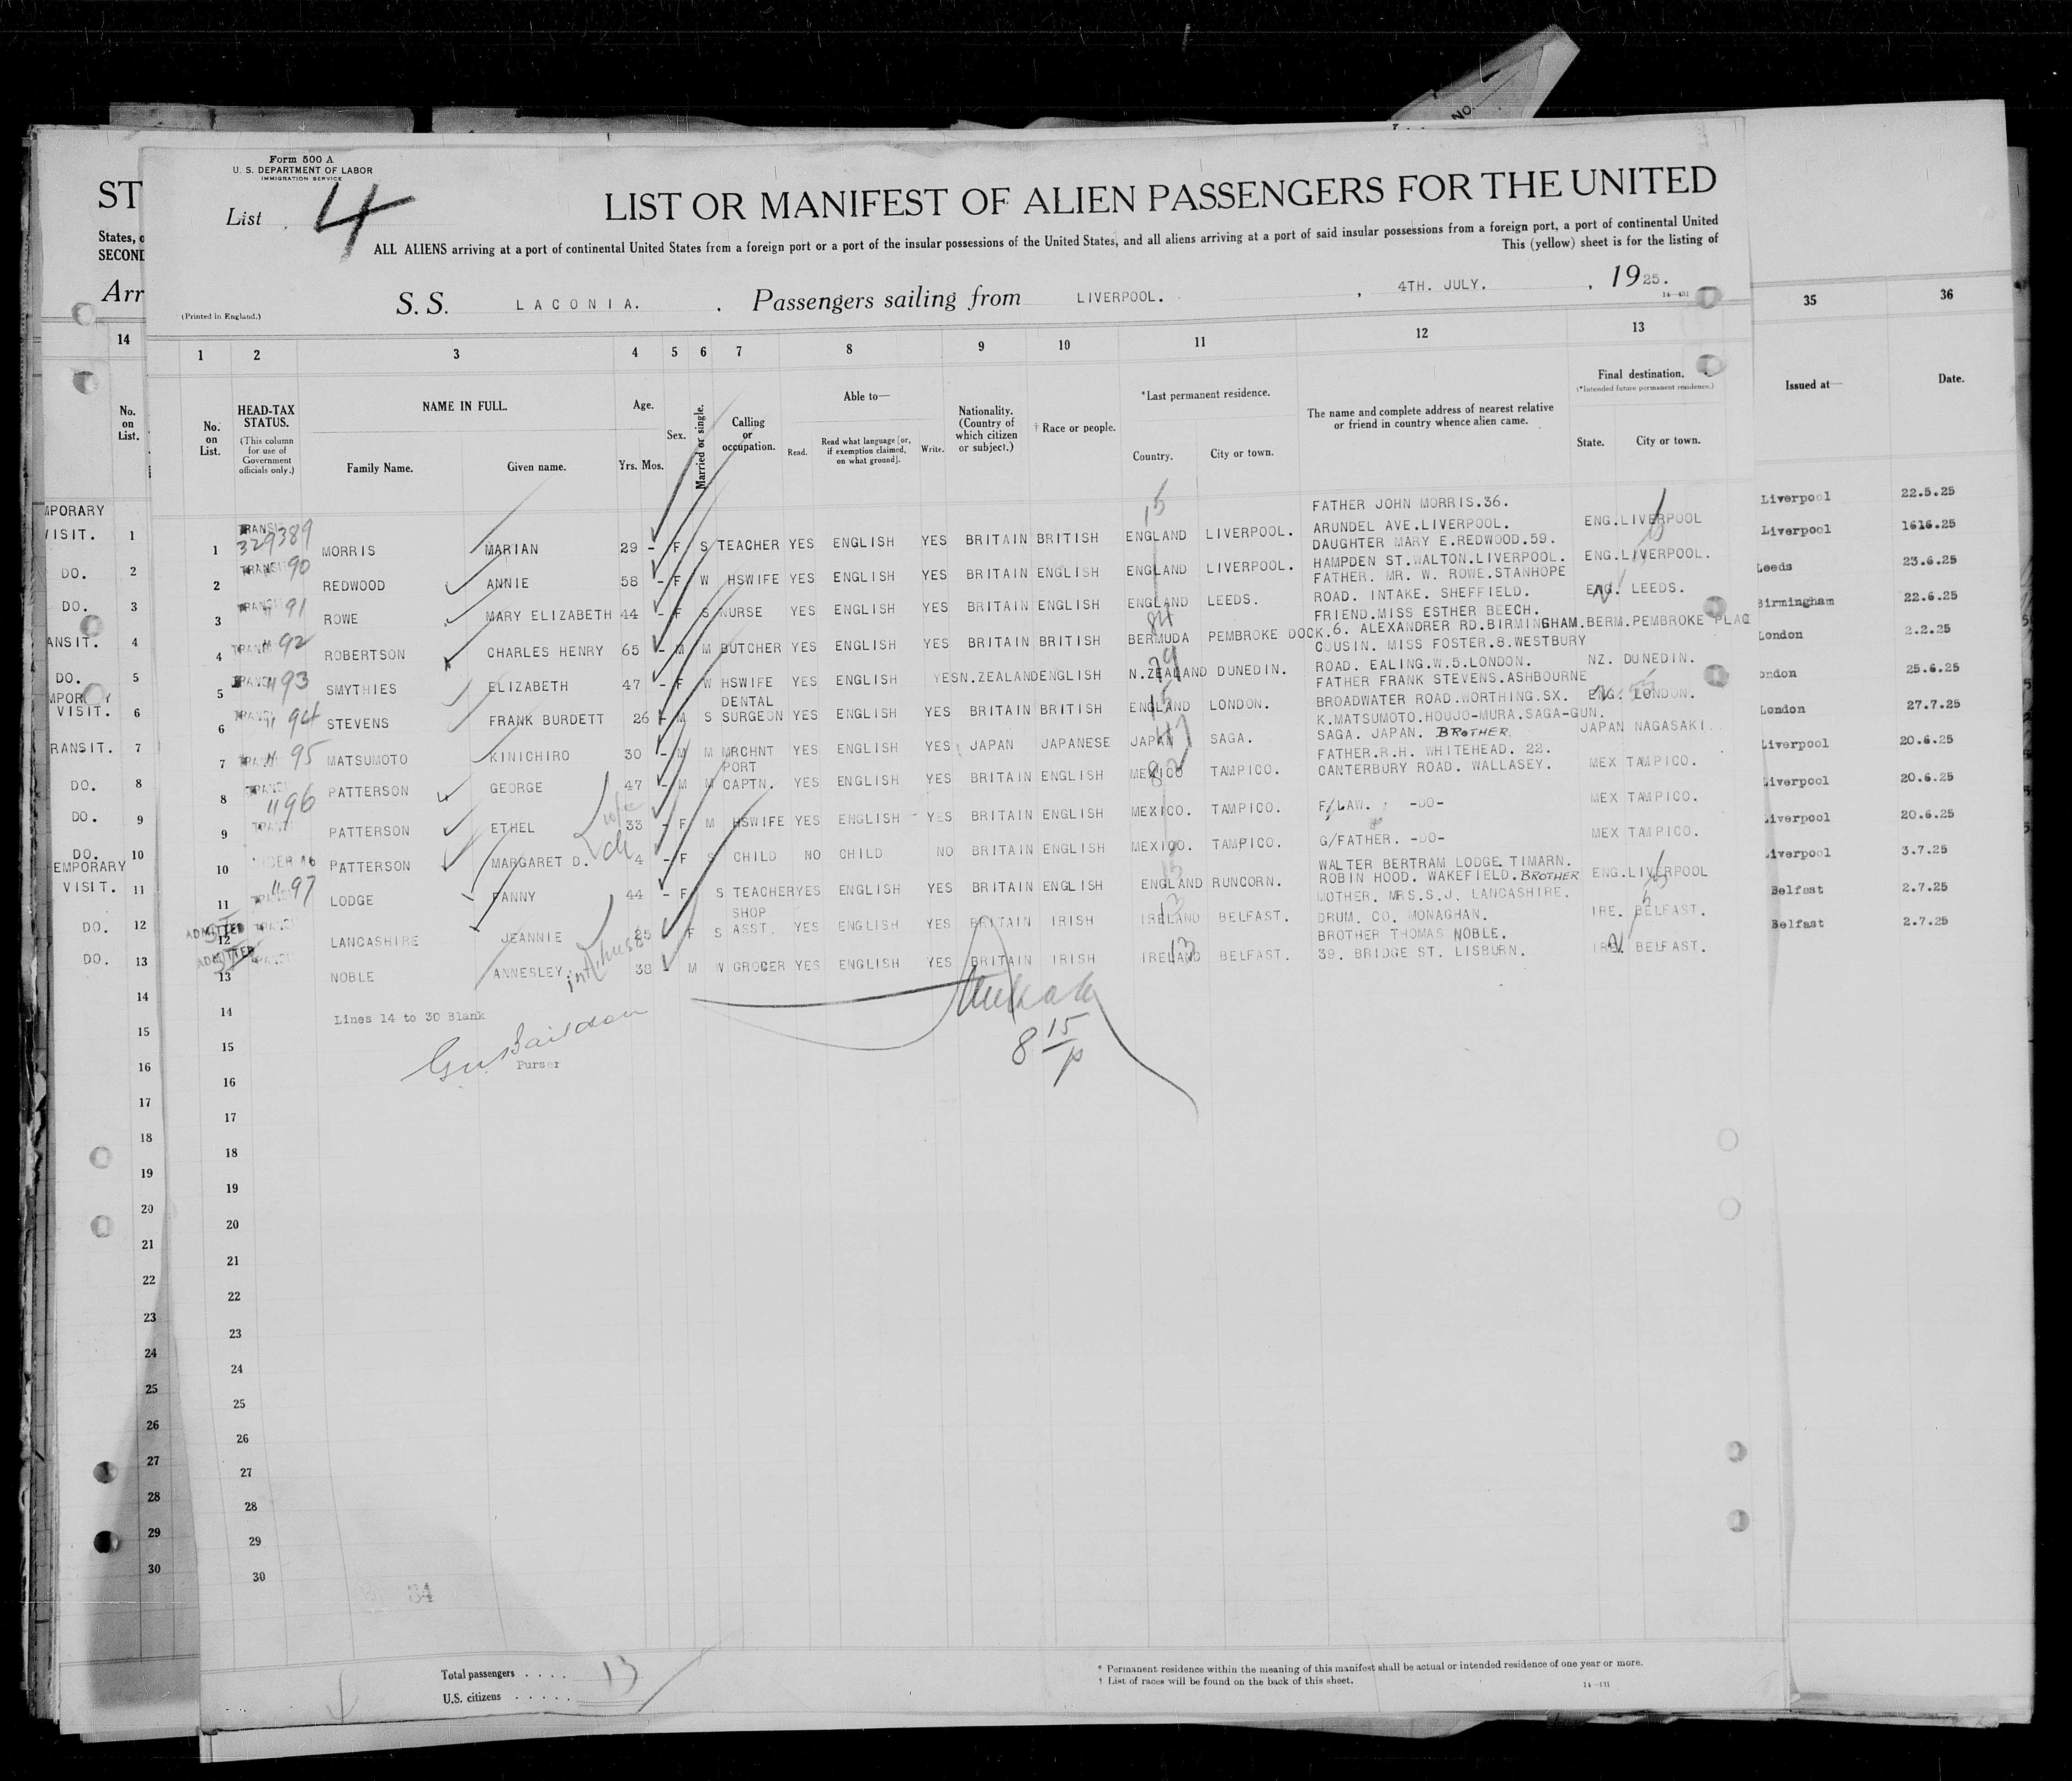 Form 500 A
U. S. DEPARTMENT OF LABOR
IMMIGRATION SERVICE
List 4
LIST OR MANIFEST OF ALIEN PASSENGERS FOR THE UNITED
ALL ALIENS arriving at a port of continental United States from a foreign port or a port of the insular possessions of the United States, and all aliens arriving at a port of said insular possessions from a foreign port, a port of continental United
This (yellow) sheet is for the listing of
S. S. LACONIA. Passengers sailing from LIVERPOOL. , 4TH. JULY. , 1925.
(Printed in England.)
14—431
ST
States, o
SECOND
Arr
14
No. on List.
35 36
Issued at— Date.
1 2 3 4 5 6 7 8 9 10 11 12 13
No. on List.
HEAD-TAX STATUS.
(This column for use of Government officials only.)
NAME IN FULL.
Family Name. Given name.
Age.
Yrs. Mos.
Sex.
Married or single.
Calling or occupation.
Able to—
Read. Read what language [or, if exemption claimed, on what ground]. Write.
Nationality. (Country of which citizen or subject.)
† Race or people.
*Last permanent residence.
Country. City or town.
The name and complete address of nearest relative or friend in country whence alien came.
Final destination.
(*Intended future permanent residence.)
State. City or town.
1 TRANSIT 329389 MORRIS MARIAN 29 - F S TEACHER YES ENGLISH YES BRITAIN BRITISH ENGLAND LIVERPOOL. FATHER JOHN MORRIS.36. ARUNDEL AVE.LIVERPOOL. ENG.LIVERPOOL Liverpool 22.5.25
2 TRANSIT 90 REDWOOD ANNIE 58 - F W HSWIFE YES ENGLISH YES BRITAIN ENGLISH ENGLAND LIVERPOOL. DAUGHTER MARY E.REDWOOD.59. HAMPDEN ST.WALTON.LIVERPOOL. ENG.LIVERPOOL. Liverpool 1616.25
3 " 91 ROWE MARY ELIZABETH 44 - F S NURSE YES ENGLISH YES BRITAIN ENGLISH ENGLAND LEEDS. FATHER. MR. W. ROWE.STANHOPE ROAD. INTAKE. SHEFFIELD. ENG. LEEDS. Leeds 23.6.25
4 " 92 ROBERTSON CHARLES HENRY 65 - M M BUTCHER YES ENGLISH YES BRITAIN BRITISH BERMUDA PEMBROKE DOCK. FRIEND.MISS ESTHER BEECH. 6. ALEXANDRER RD.BIRMINGHAM. BERM.PEMBROKE PLAC Birmingham 22.6.25
5 " 93 SMYTHIES ELIZABETH 47 - F W HSWIFE YES ENGLISH YES N.ZEALAND ENGLISH N.ZEALAND DUNEDIN. COUSIN. MISS FOSTER.8.WESTBURY ROAD. EALING.W.5.LONDON. NZ. DUNEDIN. London 2.2.25
6 " 94 STEVENS FRANK BURDETT 26 - M S DENTAL SURGEON YES ENGLISH YES BRITAIN BRITISH ENGLAND LONDON. FATHER FRANK STEVENS.ASHBOURNE BROADWATER ROAD.WORTHING.SX. ENG. LONDON. ondon 25.6.25
7 " 95 MATSUMOTO KINICHIRO 30 - M M MRCHNT YES ENGLISH YES JAPAN JAPANESE JAPAN SAGA. K.MATSUMOTO.HOUJO-MURA.SAGA-GUN. SAGA. JAPAN. BROTHER. JAPAN NAGASAKI. London 27.7.25
8 TRANSIT "96 PATTERSON GEORGE 47 - M M PORT CAPTN. YES ENGLISH YES BRITAIN ENGLISH MEXICO TAMPICO. FATHER.R.H. WHITEHEAD. 22. CANTERBURY ROAD. WALLASEY. MEX TAMPICO. Liverpool 20.6.25
9 PATTERSON ETHEL wife 33 - F M HSWIFE YES ENGLISH - YES BRITAIN ENGLISH MEXICO. TAMPICO. F/LAW. -DO- MEX TAMPICO. Liverpool 20.6.25
10 UNDER 16 PATTERSON MARGARET D. ch 4 - F S CHILD NO CHILD NO BRITAIN ENGLISH MEXICO. TAMPICO. G/FATHER. -DO- MEX TAMPICO. Liverpool 20.6.25
11 "97 LODGE FANNY 44 - F S TEACHER YES ENGLISH YES BRITAIN ENGLISH ENGLAND RUNCORN. WALTER BERTRAM LODGE.TIMARN. ROBIN HOOD. WAKEFIELD. BROTHER ENG.LIVERPOOL Liverpool 3.7.25
12 ADMITTED LANCASHIRE JEANNIE 25 F S SHOP ASST. YES ENGLISH YES BRITAIN IRISH IRELAND BELFAST. MOTHER. MRS.S.J. LANCASHIRE. DRUM. CO. MONAGHAN. IRE. BELFAST. Belfast 2.7.25
13 ADMITTED NOBLE ANNESLEY 38 - M W GROCER YES ENGLISH YES BRITAIN IRISH IRELAND BELFAST. BROTHER THOMAS NOBLE. 39. BRIDGE ST. LISBURN. IRE. BELFAST. Belfast 2.7.25
MPORARY
VISIT. 1
DO. 2
DO. 3
ANSIT. 4
DO. 5
VISIT. 6
RANSIT. 7
DO. 8
DO. 9
DO. 10
EMPORARY
VISIT. 11
DO. 12
DO. 13
14 14
15 15
16 16
17 17
18 18
19 19
20 20
21 21
22 22
23 23
24 24
25 25
26 26
27 27
28 28
29 29
30 30
Lines 14 to 30 Blank
Purser
8 15/p
34
Total passengers . . . . 13
U.S. citizens . . . . .
* Permanent residence within the meaning of this manifest shall be actual or intended residence of one year or more.
† List of races will be found on the back of this sheet.
14—431